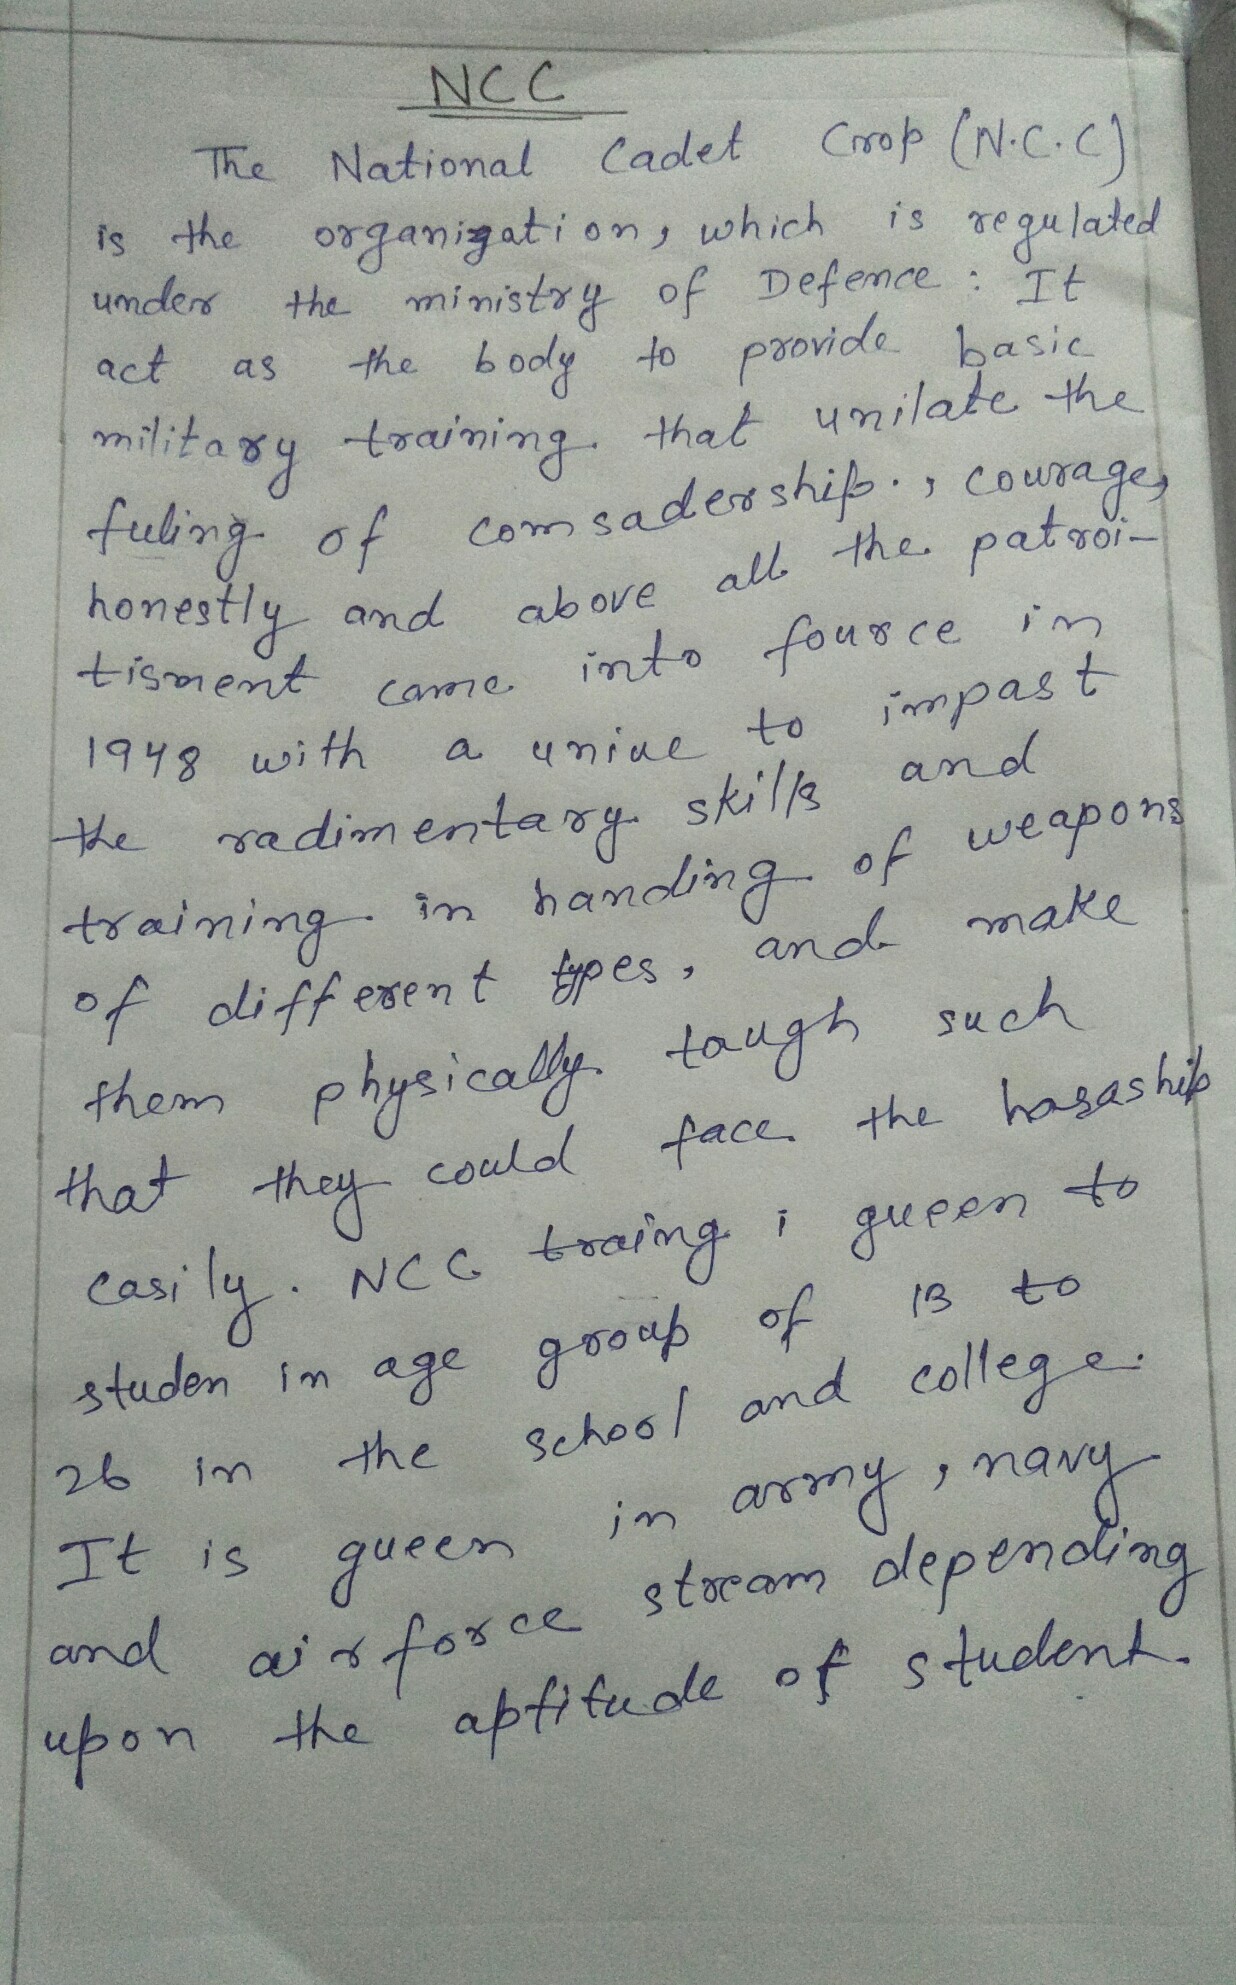 NCC
The National Cadet Crop (N.C.C)
is the organization, which is regulated
under the ministry of Defence : It
act as the body to provide basic
military training that unilate the
fuling of comsadership . , courage,
honestly and above all the patroi-
tisment came into fource in
1948 with a uniue to impast
the radimentary skills and
training in handing of weapons
of different types , and make
them physically taugh such
that they could face the hasaship
easily . NCC traing i gueen to
studen in age group of 13 to
26 in the school and college .
It is gueen in army , navy
and air force stream depending
upon the aptitude of student .